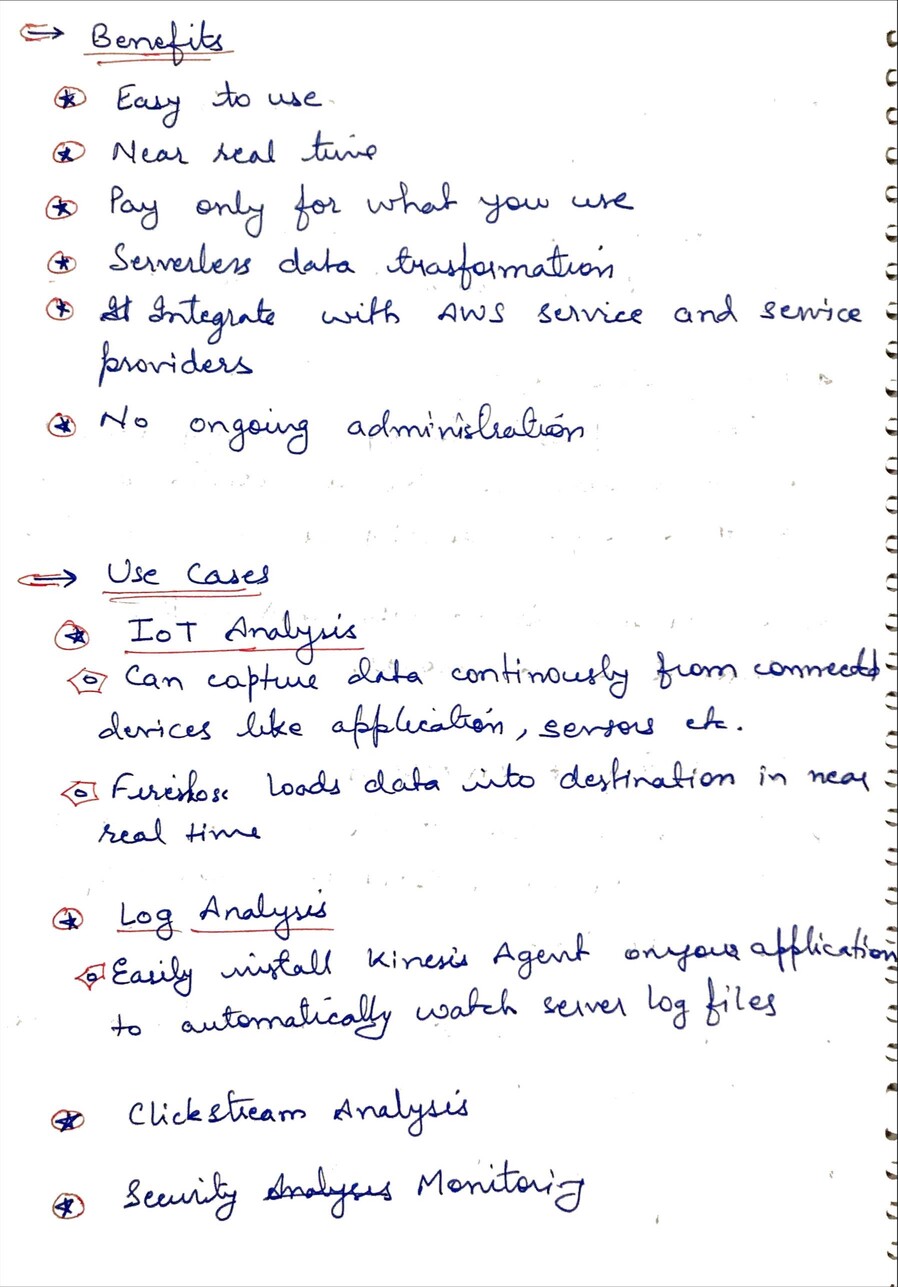 Benefits
Easy to use
Near real time
Pay only for what you use
Serverless data trasformation
Integrate with AWS service and service
providers
No ongoing administration
Use Cases
IoT Analysis
Can capture data continously from connected
devices like application, sensors etc.
Firehose loads data into destination in near
real time
Log Analysis
Easily install Kinesis Agent on your application
to automatically watch server log files
Clickstream Analysis
Security Analysis Monitoring